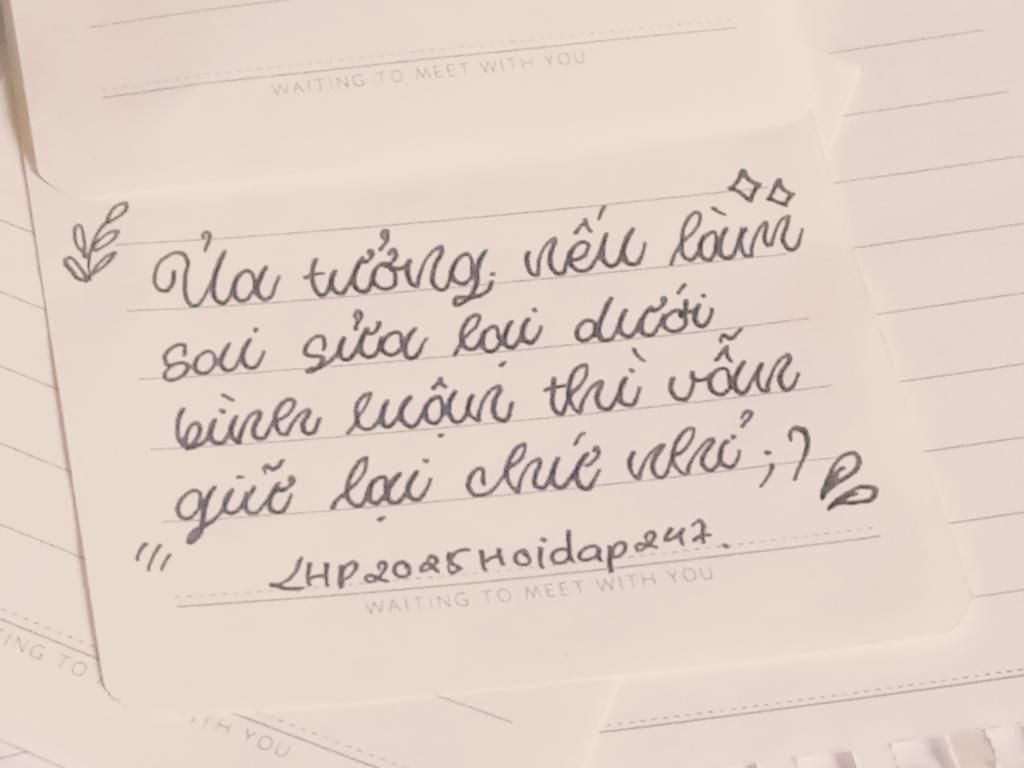 WAITING TO MEET WITH YOU
Ủa tưởng, nếu làm
sai sửa lại dưới
bình luận thì vẫn
giữ lại chứ nhỉ ;?
LHP2025Hoidap247.
WAITING TO MEET WITH YOU
TING TO
TH YOU